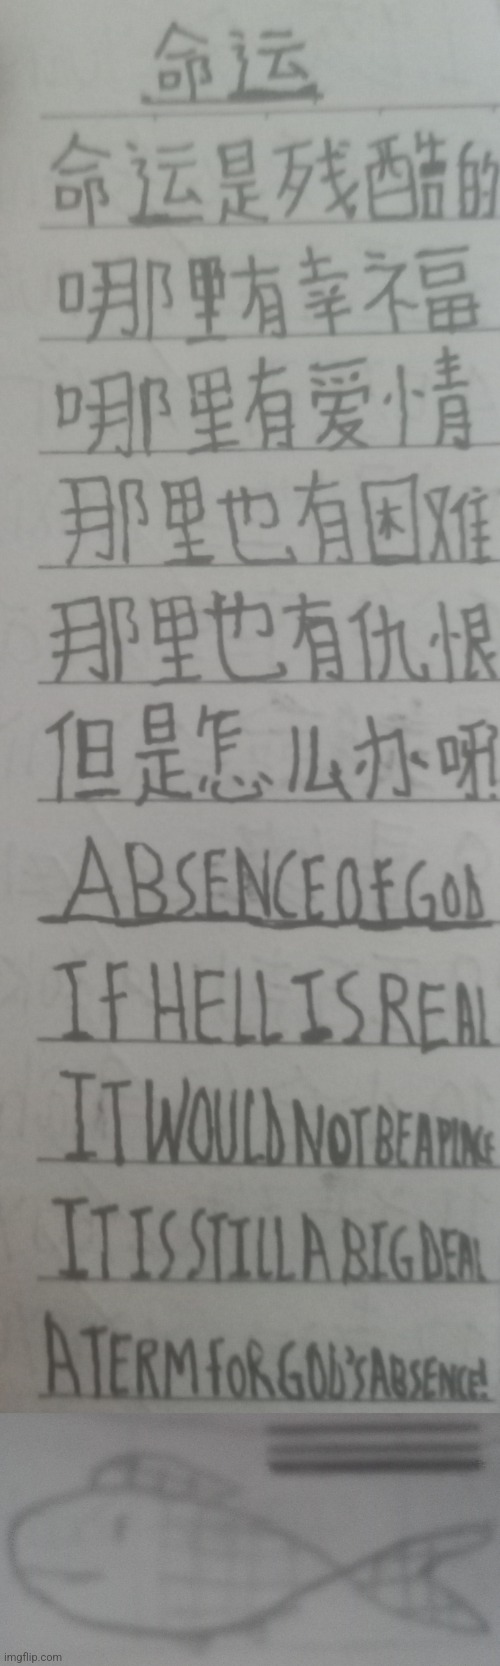 命运
命运是残酷的
哪里有幸福
哪里有爱情
那里也有困难
那里也有仇恨
但是怎么办呀
ABSENCE OF GOD
IF HELL IS REAL
IT WOULD NOT BE A PLACE
IT IS STILL A BIG DEAL
A TERM FOR GOD'S ABSENCE!
imgflip.com